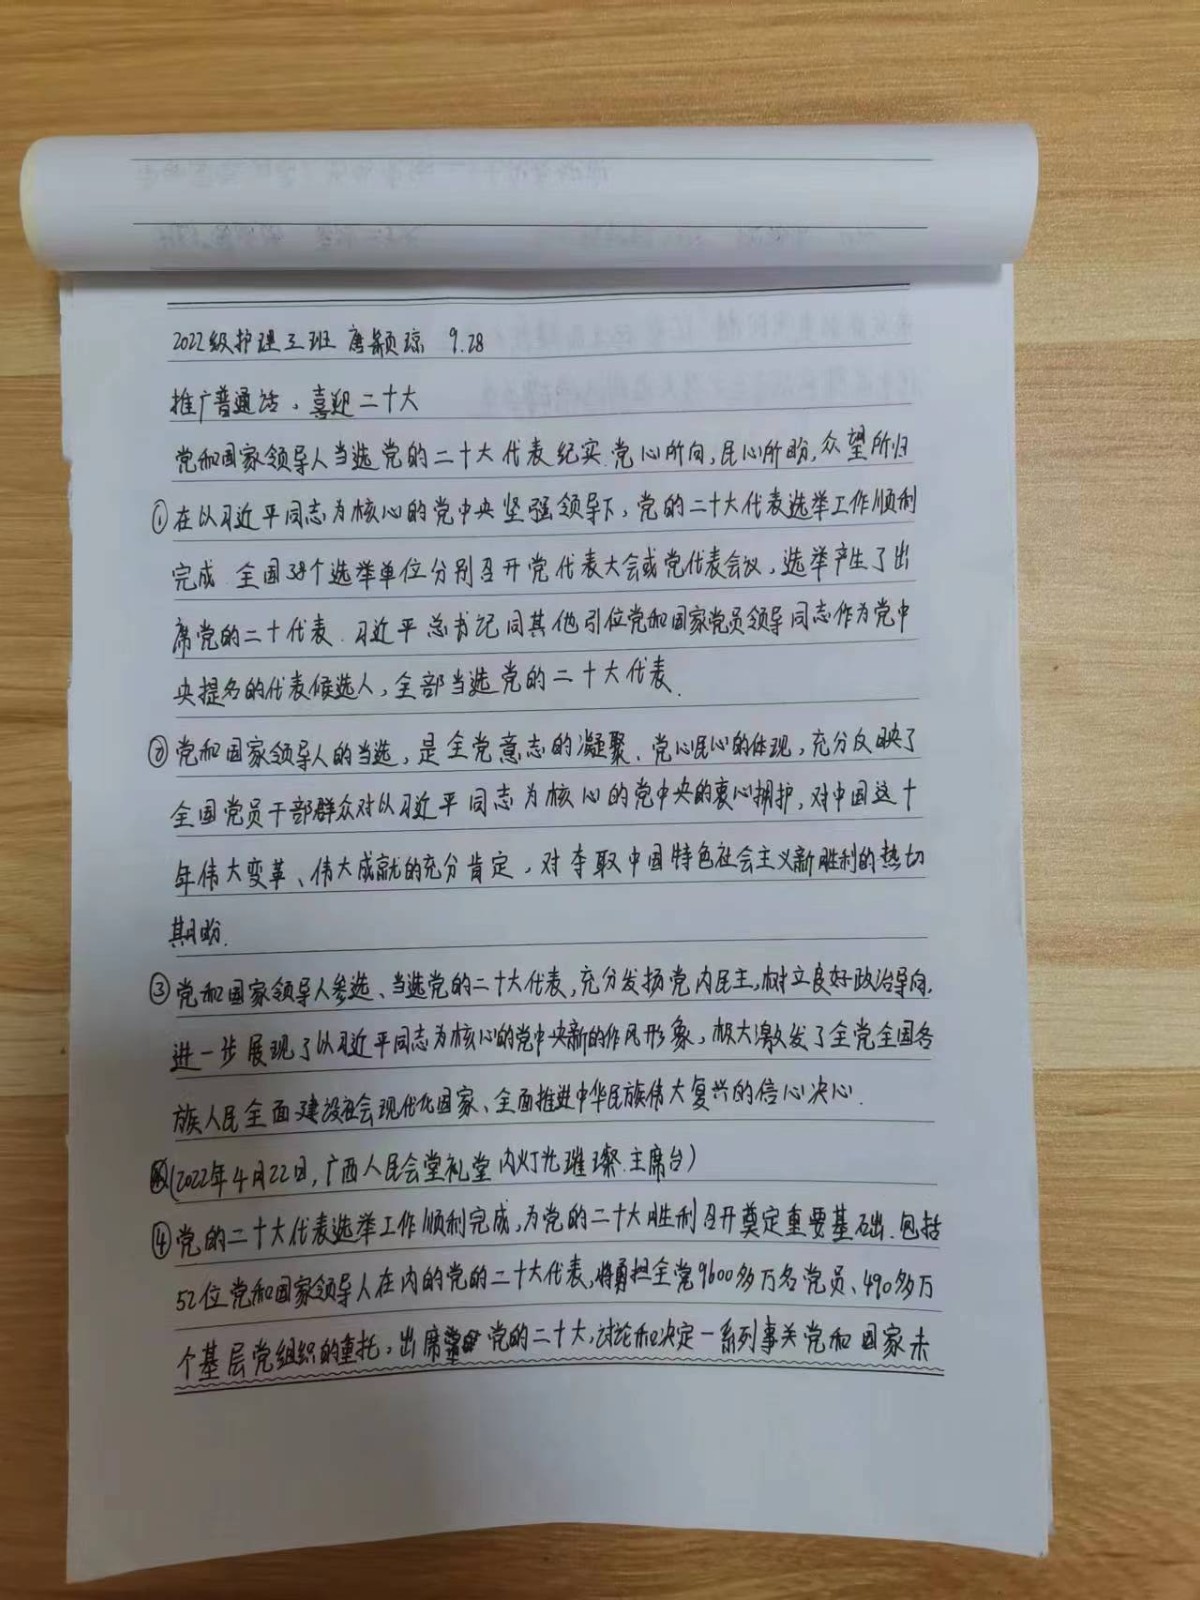 2022级护理三班 唐颖琼 9.28
推广普通话，喜迎二十大
党和国家领导人当选党的二十大代表纪实.党心所向,民心所盼,众望所归
①在以习近平同志为核心的党中央坚强领导下,党的二十大代表选举工作顺利
完成 全国38个选举单位分别召开党代表大会或党代表会议,选举产生了出
席党的二十代表.习近平总书记同其他引位党和国家党员领导同志作为党中
央提名的代表候选人,全部当选党的二十大代表.
②党和国家领导人的当选,是全党意志的凝聚、党心民心的体现,充分反映了
全国党员干部群众对以习近平同志为核心的党中央的衷心拥护,对中国这十
年伟大变革、伟大成就的充分肯定,对夺取中国特色社会主义新胜利的热切
期盼.
③党和国家领导人参选、当选党的二十大代表,充分发扬党内民主,树立良好政治导向.
进一步展现了以习近平同志为核心的党中央新的作风形象,极大激发了全党全国各
族人民全面建设社会现代化国家、全面推进中华民族伟大复兴的信心决心.
(2022年4月22日,广西人民会堂礼堂内灯光璀璨.主席台)
④党的二十大代表选举工作顺利完成,为党的二十大胜利召开奠定重要基础.包括
52位党和国家领导人在内的党的二十大代表,将肩担全党9600多万名党员、490多万
个基层党组织的重托,出席党的二十大,讨论和决定一系列事关党和国家未